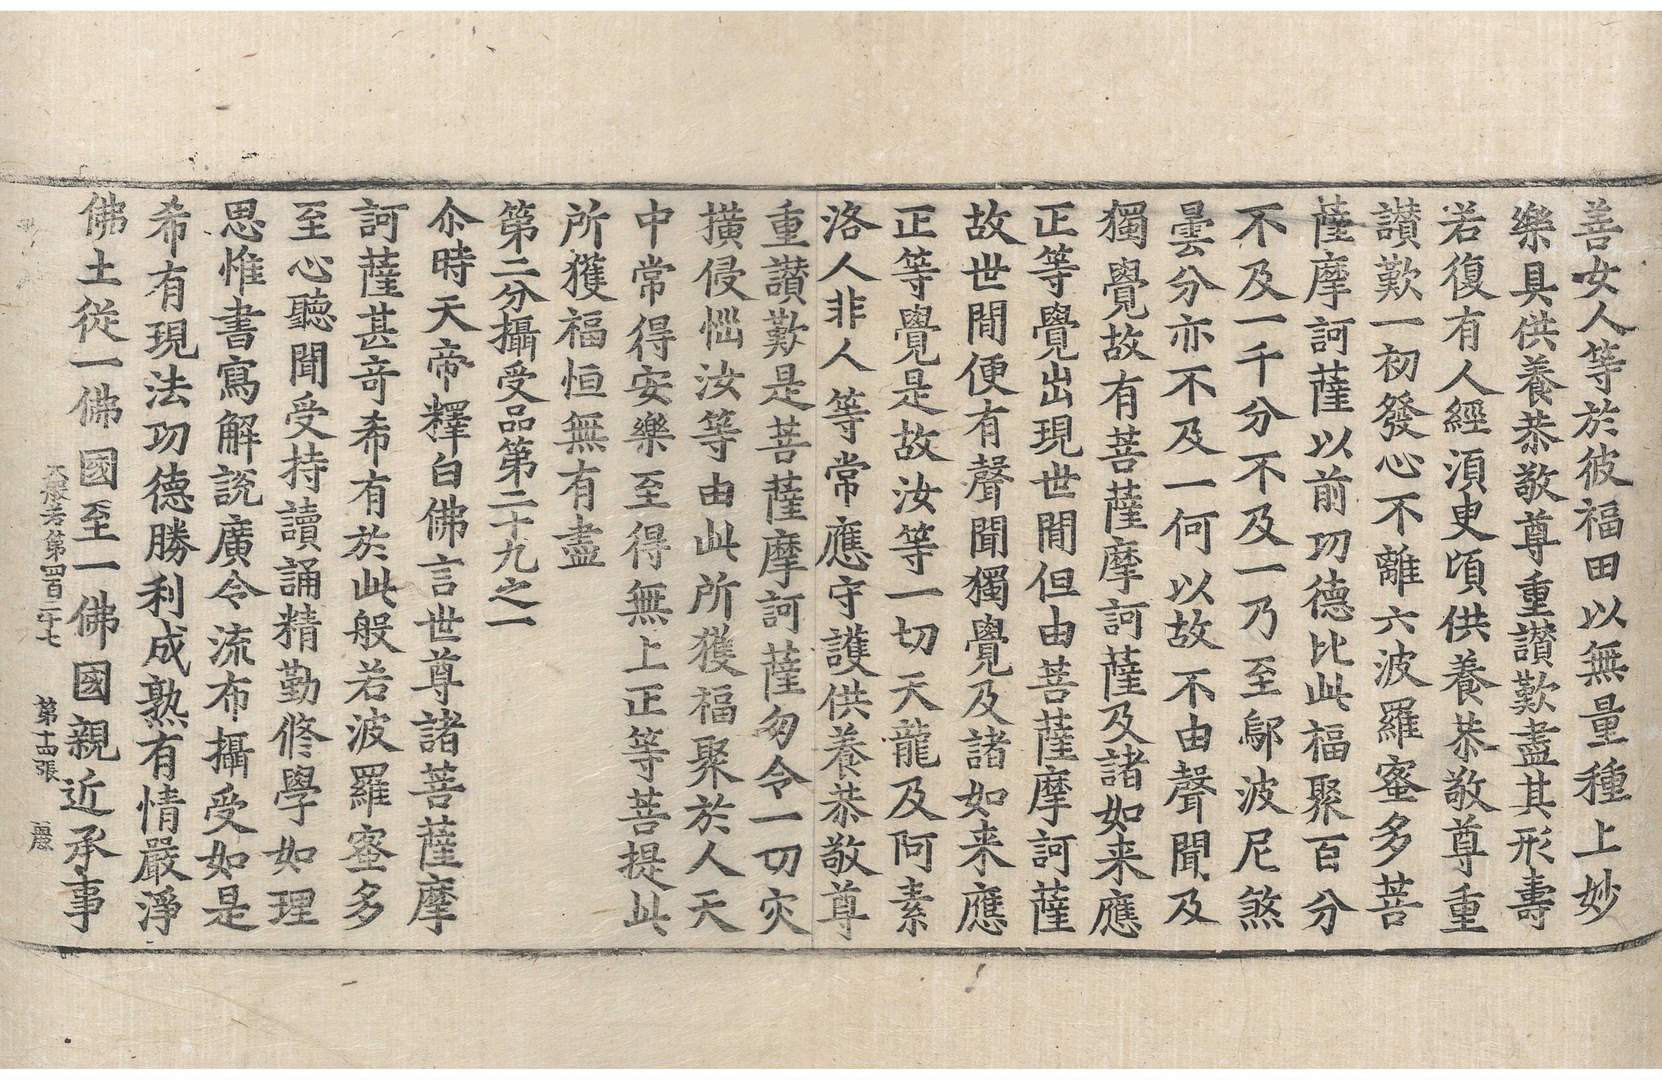 善女人等於彼福田以無量種上妙
樂具供養恭敬尊重讃歎盡其形壽
若復有人經湏㬰頃供養恭敬尊重
讃歎一初發心不離六波羅蜜多菩
薩摩訶薩以前功德比此福聚百分
不及一千分不及一乃至鄔波尼煞
曇分亦不及一何以故不由聲聞及
獨覺故有菩薩摩訶薩及諸如来應
正等覺出現世間但由菩薩摩訶薩
故世間便有聲聞獨覺及諸如来應
正等覺是故汝等一切天龍及阿素
洛人非人等常應守護供養恭敬尊
重讃歎是菩薩摩訶薩勿令一切灾
撗侵惱汝等由此所獲福聚於人天
中常得安樂至得無上正等菩提此
所獲福恒無有盡
第二分攝受品第二十九之一
尒時天帝釋白佛言世尊諸菩薩摩
訶薩甚竒希有於此般若波羅蜜多
至心聽聞受持讀誦精勤修學如理
思惟書寫解說廣令流布攝受如是
希有現法功德勝利成熟有情嚴淨
佛土從一佛國至一佛國親近承事
大般若第四百二十七 第十四張 麗